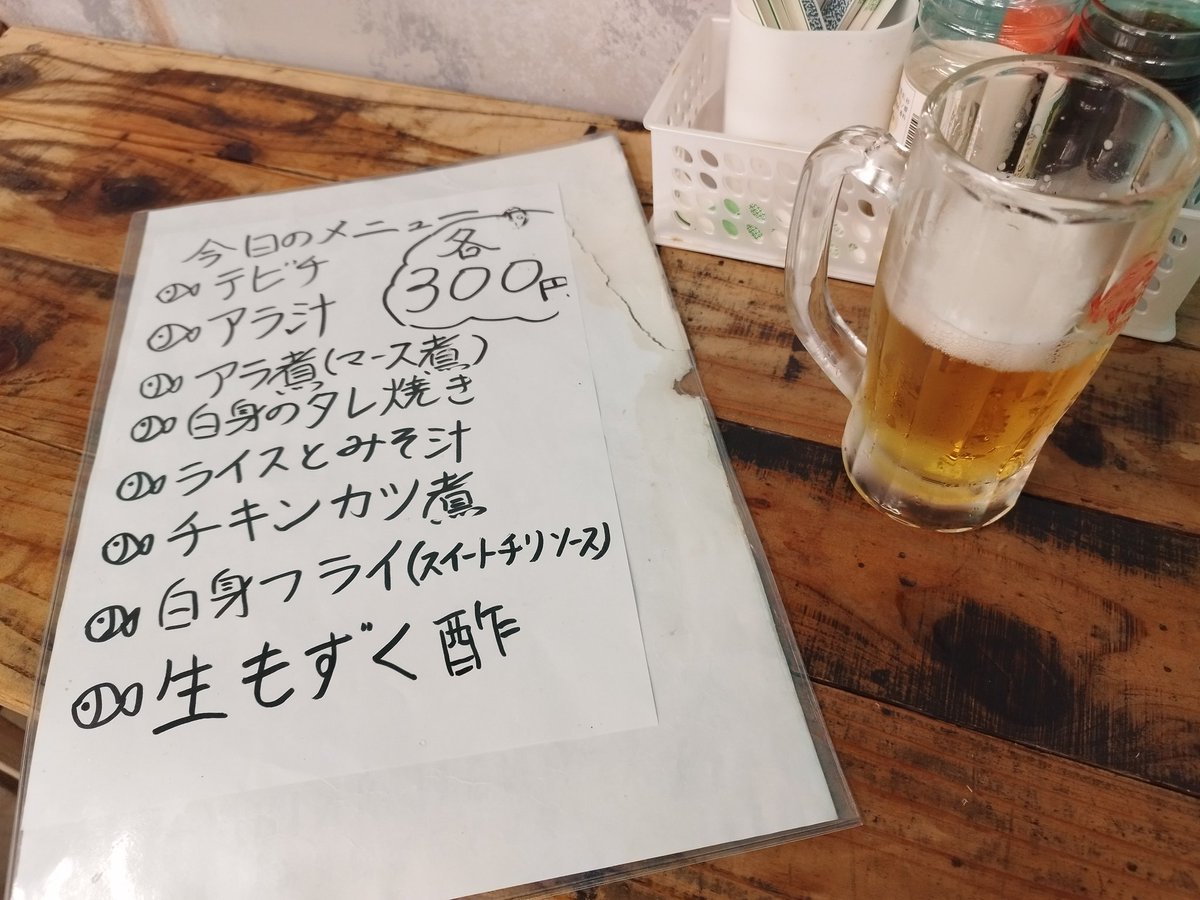 今日のメニュー
各
300円.
テビチ
アラ汁
アラ煮(マース煮)
白身のタレ焼き
ライスとみそ汁
チキンカツ煮
白身フライ(スイートチリソース)
生もずく酢